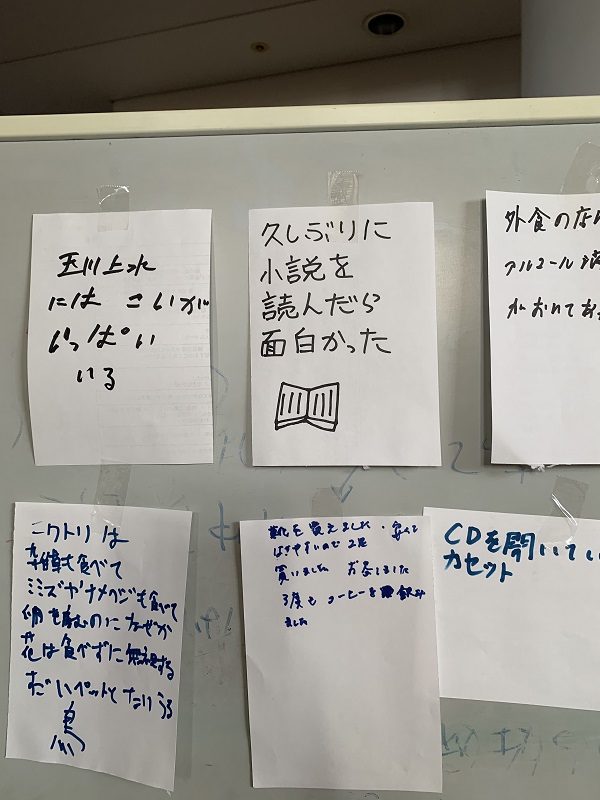 玉川上水
には こいが
いっぱい
いる
久しぶりに
小説を
読んだら
面白かった
外食の店
アルコール消
がおいてあっ
ニワトリは
雑草も食べて
ミミズやナメクジも食べて
卵も産むのになぜか
花は食べずに無視する
すごいペットとなりうる
鳥
靴を買えました・安くて
はきやすいので2足
買いました お茶しました
3度もコーヒーを飲み
ました
CDを聞いてい
カセット